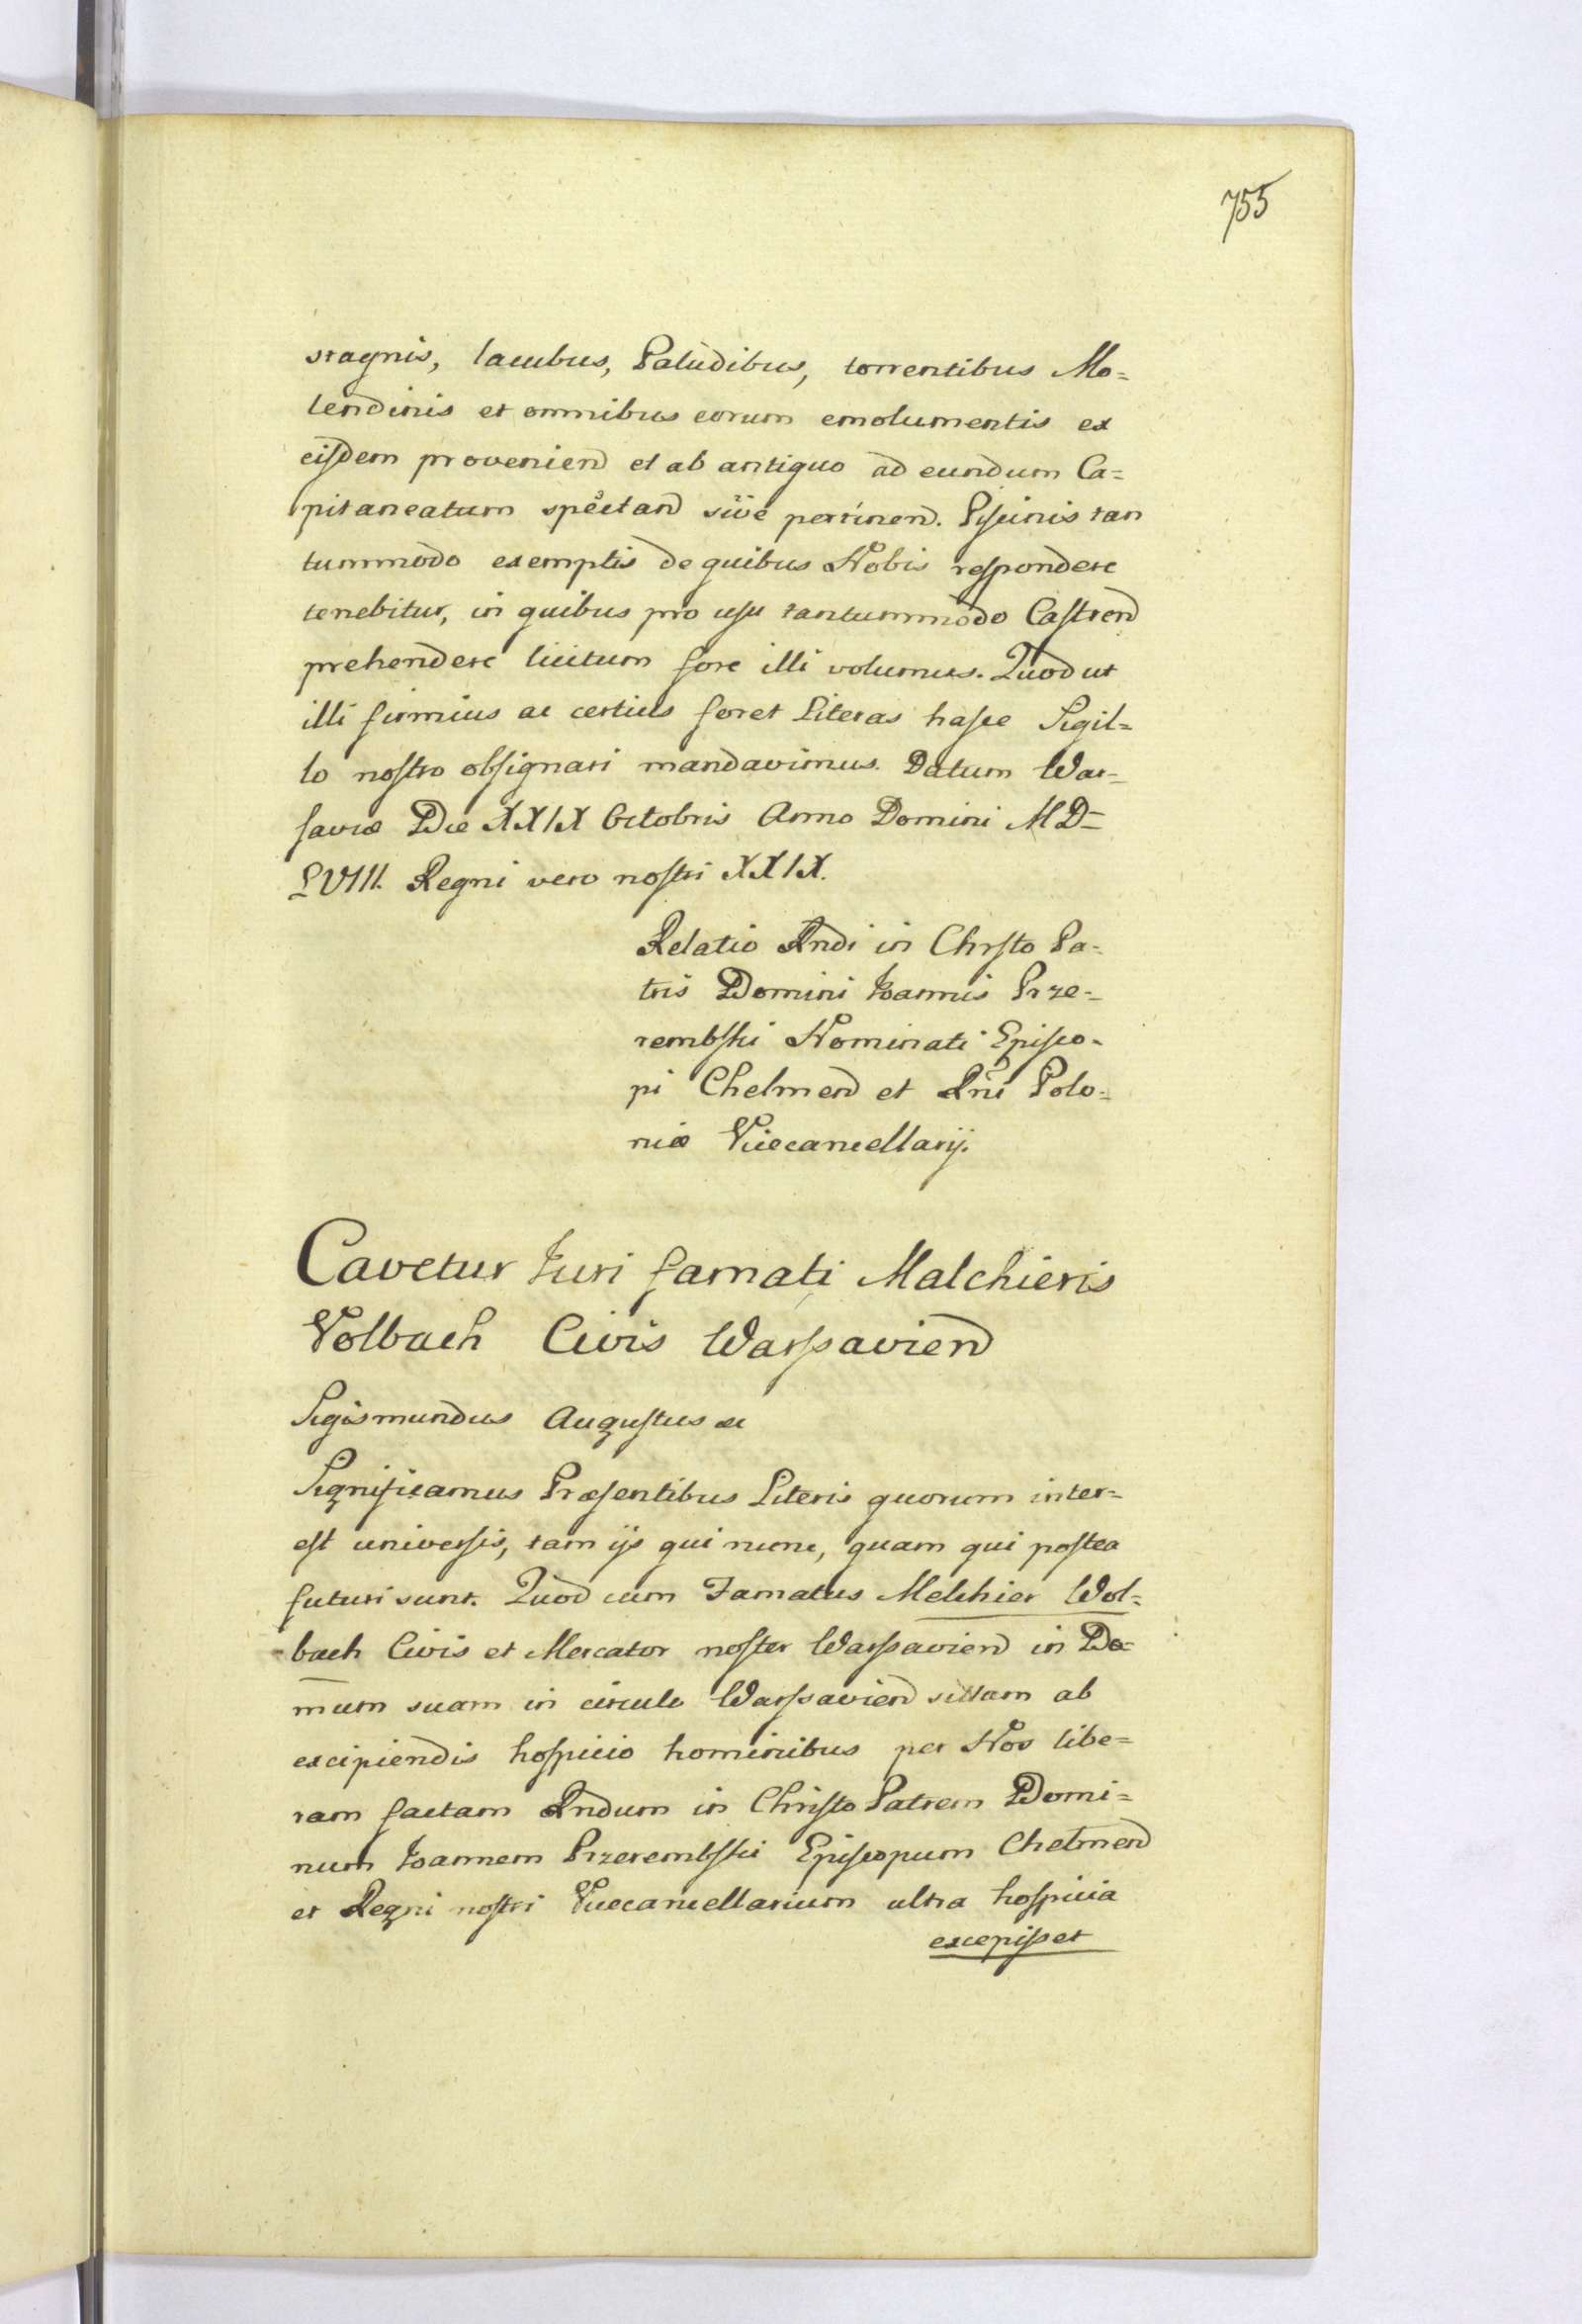 755
stagnis, lacubus, Paludibus, torrentibus Mo=
lendinis et omnibus eorum emolumentis ex
eisdem provenien et ab antiquo ad eundum Ca=
pitaneatum spectan sive pertinen. Piscinis tan
tummodo exemptis de quibus Nobis respondere
tenebitur, in quibus pro usu tantummodo Castren
prehendere licitum fore illi volumus. Quod ut
illi firmius ac certius foret Literas hasce Sigil=
lo nostro obsignari mandavimus. Datum War=
saviæ Die XXIX Octobris Anno Domini MD=
LVIII. Regni vero nostri XXIX.
Relatio Rndi in Chrsto Pa=
tris Domini Ioannis Prze=
rembski Nominati Episco=
pi Chelmen et Rni Polo=
niæ Vicecancellarij.
Cavetur Iuri famati Malchieris
Volbach Civis Warssavien
Sigismundus Augustus &c
Significamus Præsentibus Literis quorum inter=
est universis, tam ijs qui nunc, quam qui postea
futuri sunt. Quod cum Famatus Melchier Wol=
bach Civis et Mercator noster Warssavien in Do=
mum suam in circulo Warssavien sittam ab
excipiendis hospicio hominibus per Nos libe=
ram factam Rndum in Christo Patrem Domi=
num Ioannem Przerembski Episcopum Chelmen
et Regni nostri Vicecancellarium ultra hospicia
excepisset